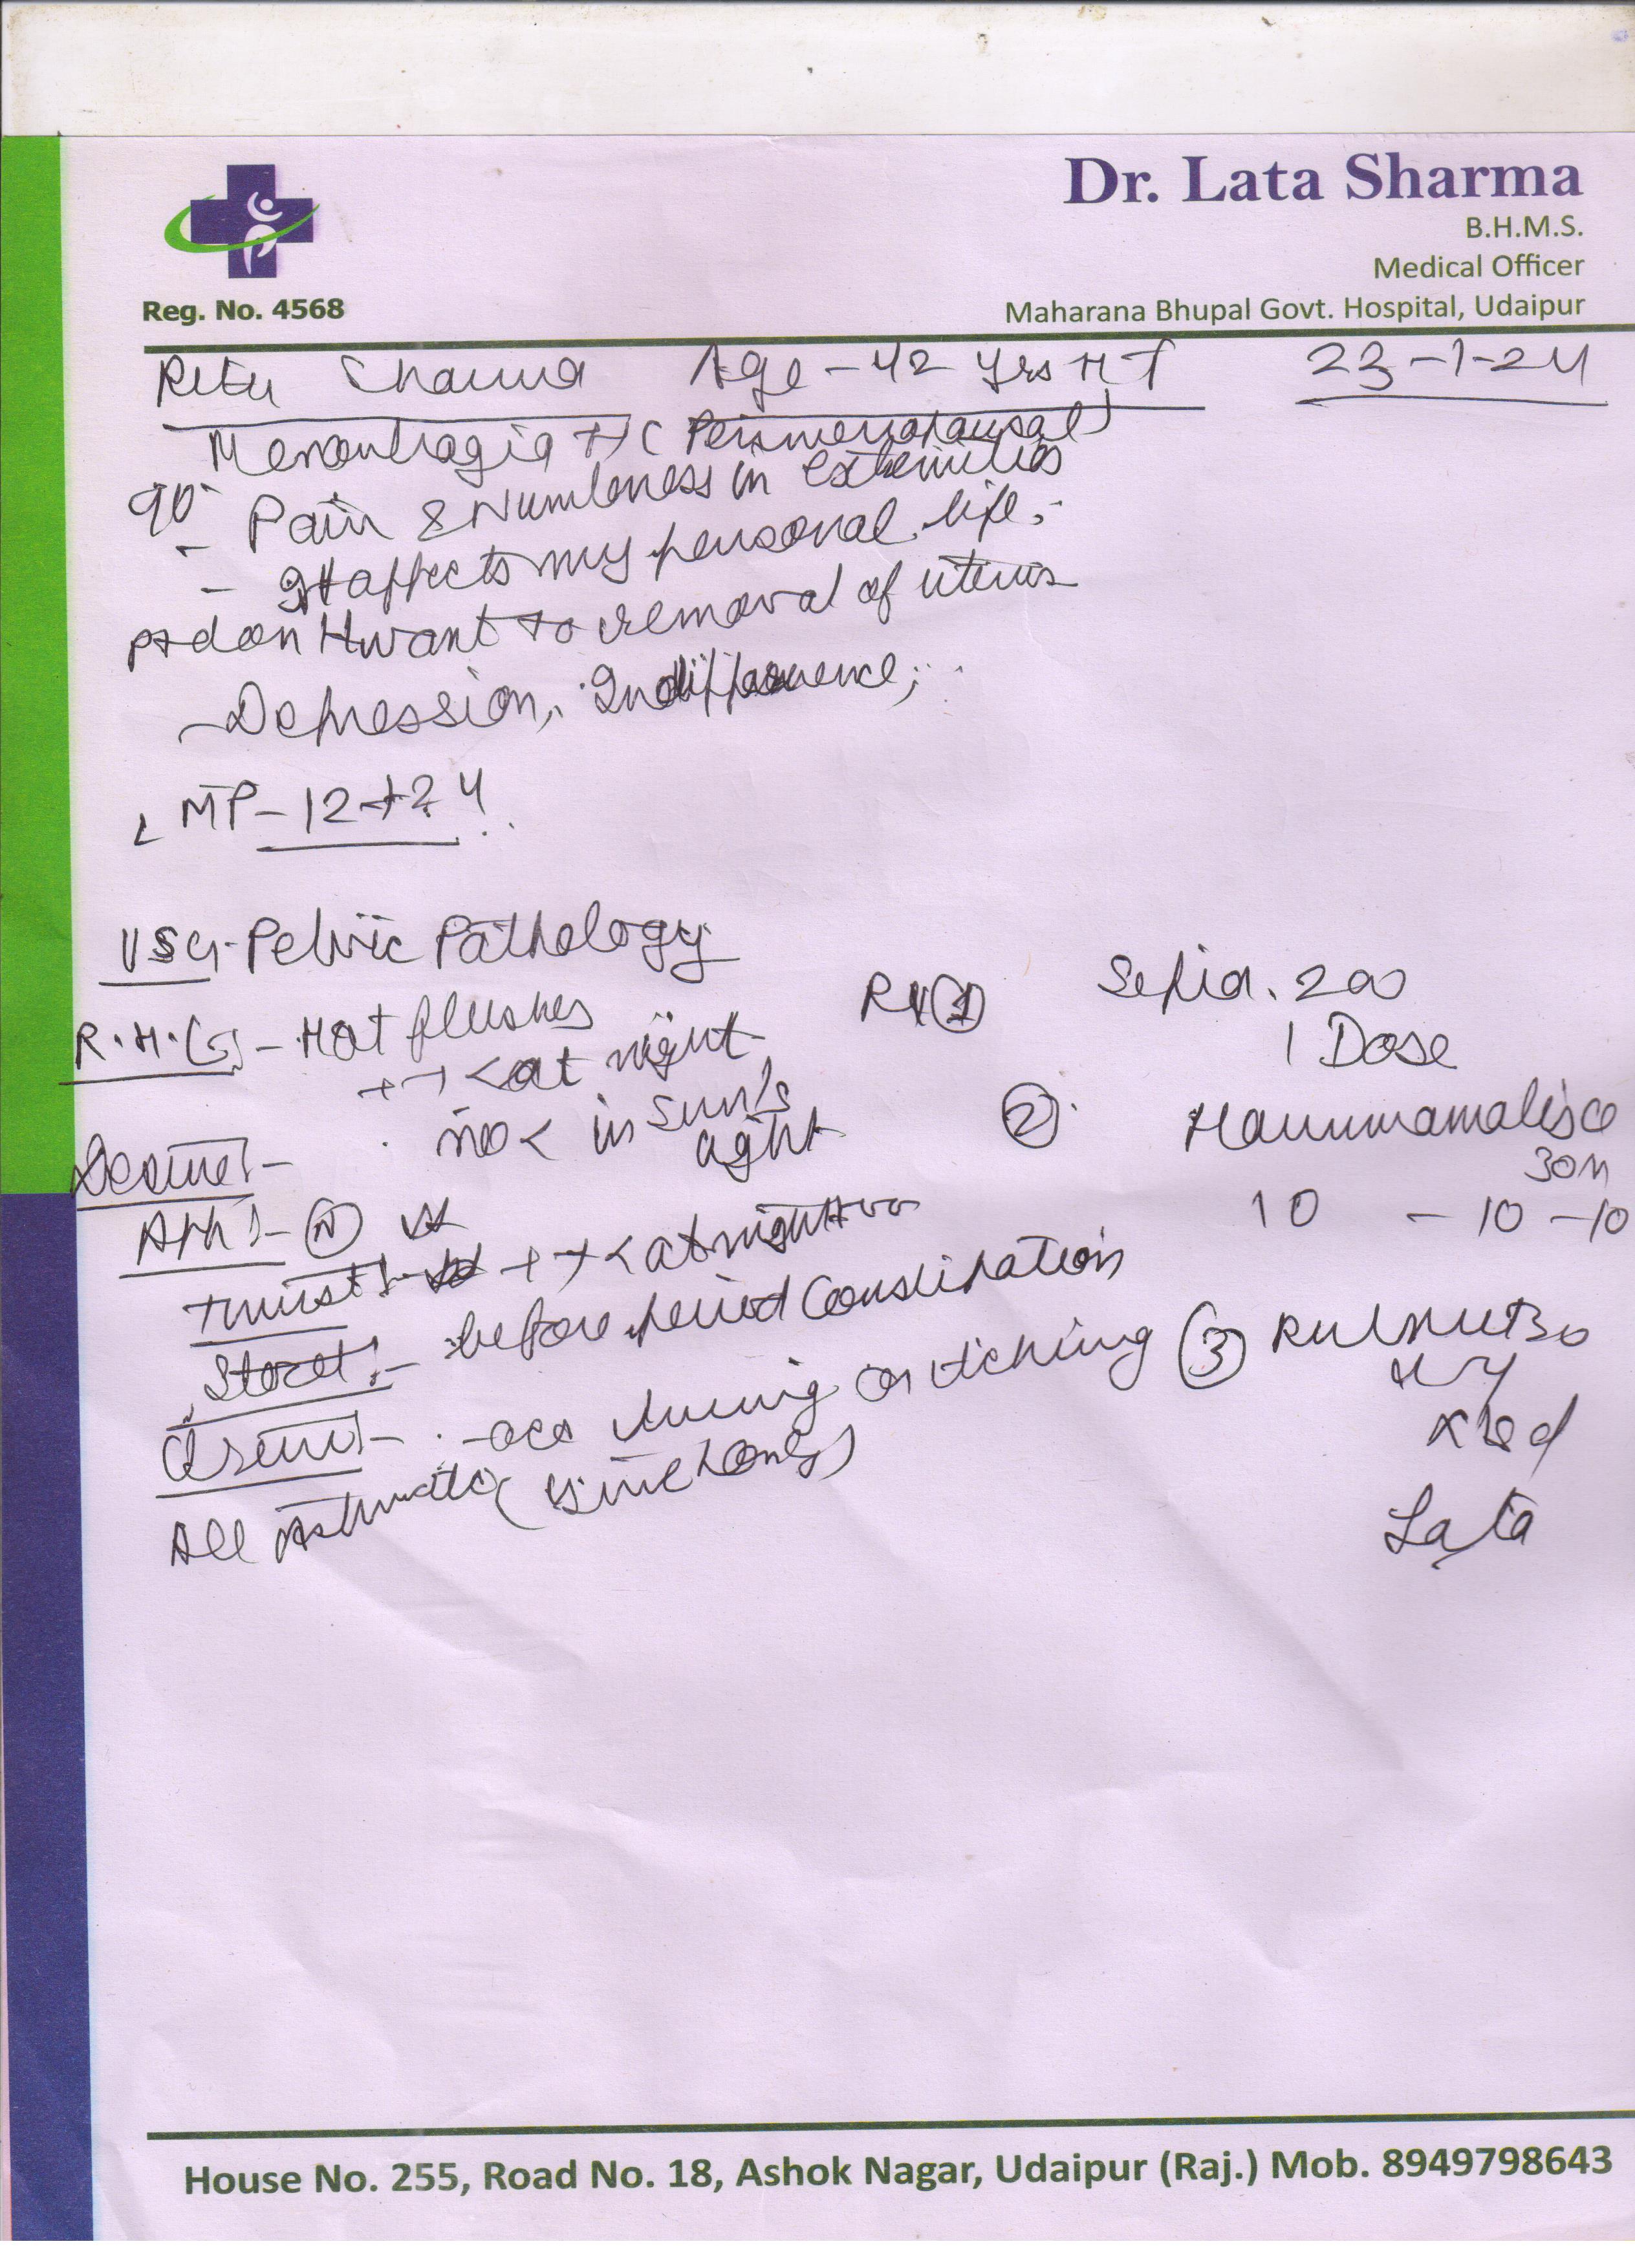 Dr. Lata Sharma
B.H.M.S.
Medical Officer
Maharana Bhupal Govt. Hospital, Udaipur
Reg. No. 4568
Ritu Sharma Age - 42 yrs 23-1-24
Menorrhagia ++ (Perimenopausal)
- Pain & Numbness in extremities
- It affects my personal life.
pt don't want to removal of uterus
- Depression, Indifference;
LMP - 12
USG - Pelvic Pathology
R.H.(s) - Hot flushes
++ < at night
no < in sun's
light
Rx (1) Sepia. 200
1 Dose
(2) Hamamalis Q
30 ml
10 - 10 - 10
Desire! -
App! - (N)
Thirst! - ++ < at night
Stool! - before period Constipation
Urine! - occ burning or itching
(3)
(sometimes)
Lata
House No. 255, Road No. 18, Ashok Nagar, Udaipur (Raj.) Mob. 8949798643